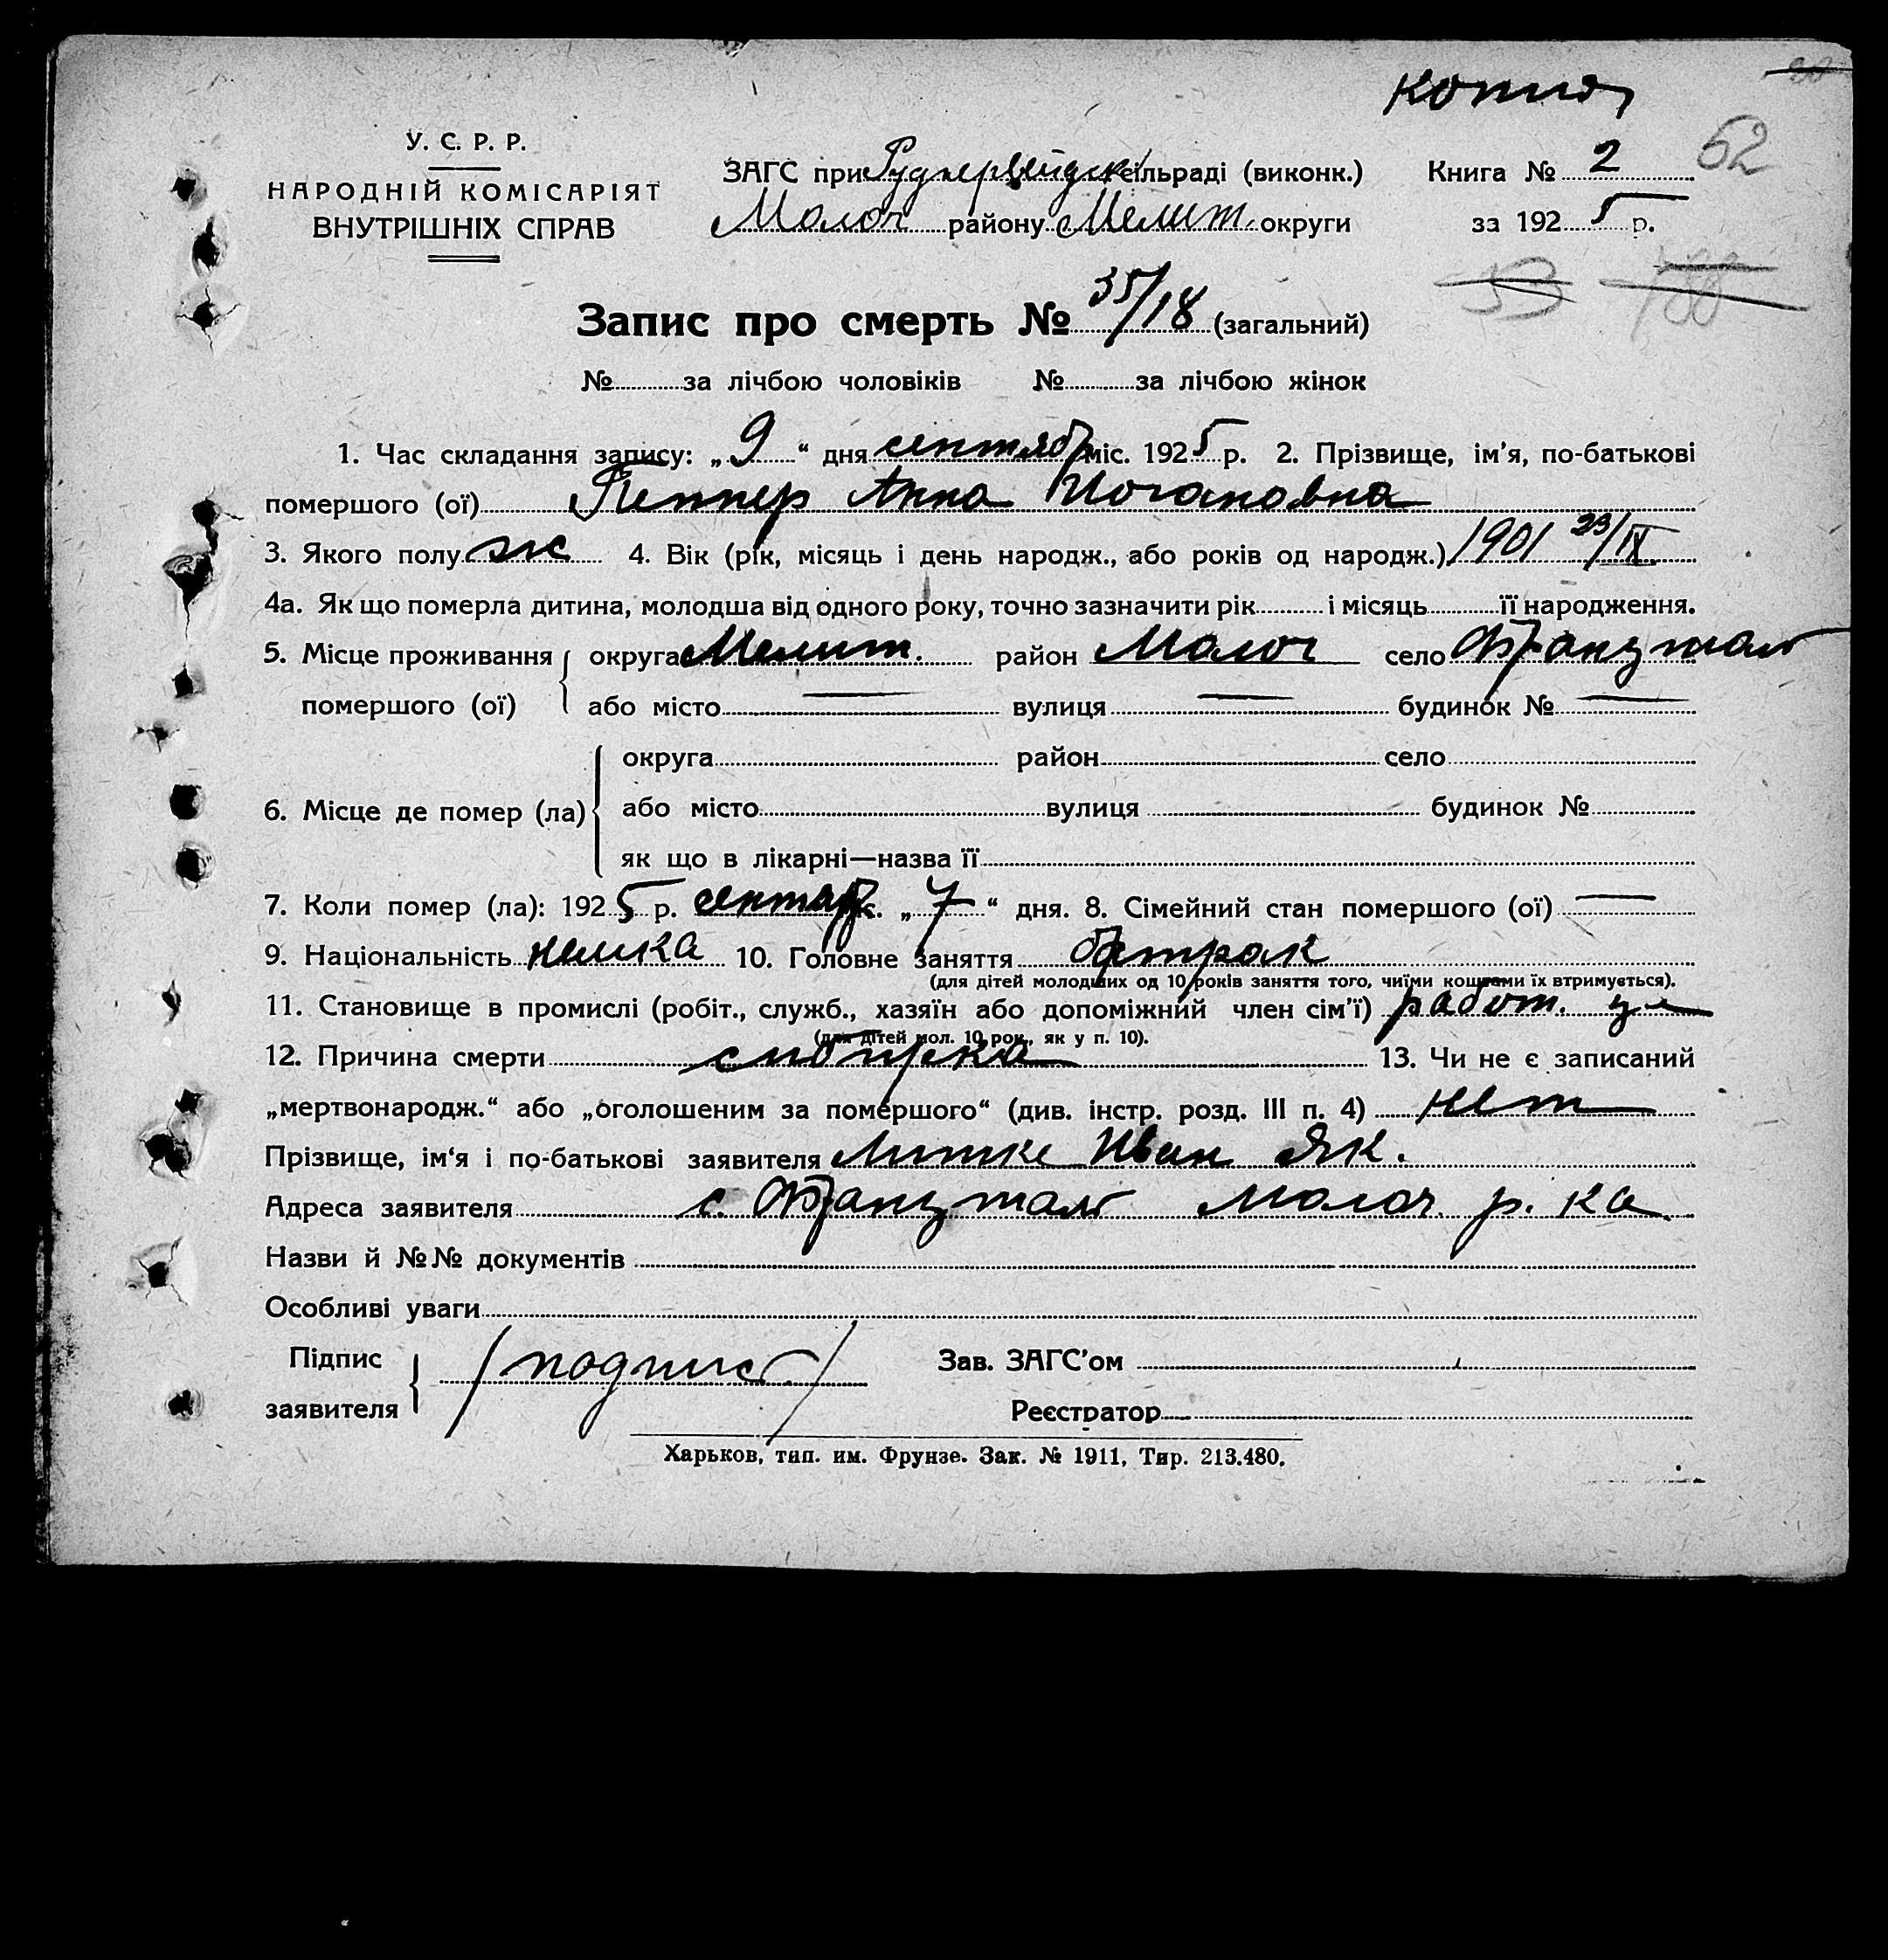 копия
У. С. Р. Р.
НАРОДНІЙ КОМІСАРІЯТ
ВНУТРІШНІХ СПРАВ
ЗАГС при Руднервейдск сільраді (виконк.)
Молоч району Мелит. округи
Книга № 2 62
за 1925 р.
53
Запис про смерть № 35/18 (загальний)
№ за лічбою чоловіків № за лічбою жінок
1. Час складання запису: „ 9 “ дня сентябр міс. 1925 р. 2. Прізвище, ім’я, по-батькові
помершого (ої) Пеннер Анна Иогановна
3. Якого полу ж 4. Вік (рік, місяць і день народж., або років од народж.) 1901 23/IX
4а. Як що померла дитина, молодша від одного року, точно зазначити рік і місяць її народження.
5. Місце проживання помершого (ої) округа Мелит. район Молоч село Францталь
або місто — вулиця — будинок № —
6. Місце де помер (ла) округа район село
або місто вулиця будинок №
як що в лікарні—назва її
7. Коли помер (ла): 1925 р. сентяб с. „ 7 “ дня. 8. Сімейний стан помершого (ої) —
9. Національність немка 10. Головне заняття батрак
(для дітей молодших од 10 років заняття того, чиїми коштами їх втримується).
11. Становище в промислі (робіт., служб., хазяїн або допоміжний член сім’ї) работ.
(для дітей мол. 10 рок., як у п. 10).
12. Причина смерти 13. Чи не є записаний
„мертвонародж.“ або „оголошеним за помершого“ (див. інстр. розд. III п. 4) нет
Прізвище, ім‘я і по-батькові заявителя Литке Иван Як.
Адреса заявителя с. Францталь Молоч. р. ка
Назви й №№ документів
Особливі уваги
Підпис заявителя /подпись/ Зав. ЗАГС’ом
Реєстратор
Харьков, тип. им. Фрунзе. Зак. № 1911, Тир. 213.480.